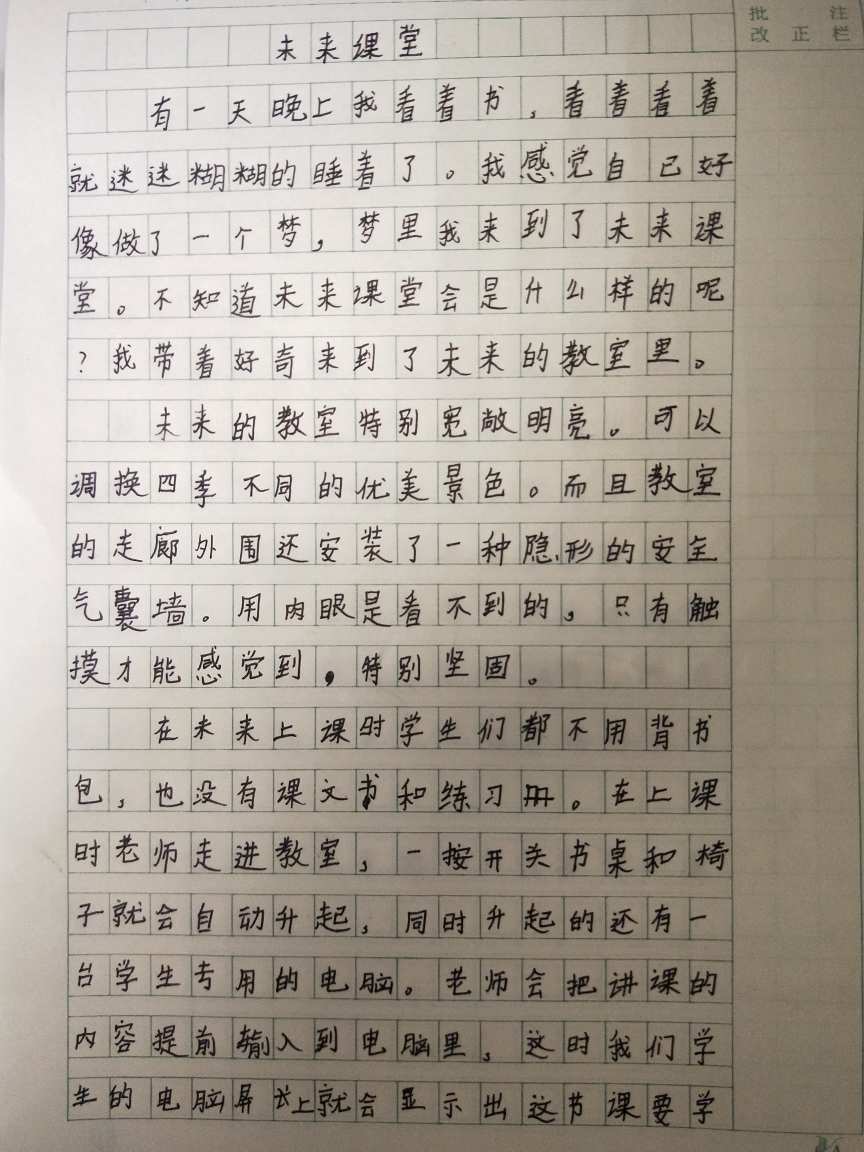 批注
改正栏
未来课堂
有一天晚上我看着书,看着看着
就迷迷糊糊的睡着了。我感觉自己好
像做了一个梦,梦里我来到了未来课
堂。不知道未来课堂会是什么样的呢
?我带着好奇来到了未来的教室里。
未来的教室特别宽敞明亮。可以
调换四季不同的优美景色。而且教室
的走廊外围还安装了一种隐形的安全
气囊墙。用肉眼是看不到的,只有触
摸才能感觉到,特别坚固。
在未来上课时学生们都不用背书
包,也没有课文书和练习册。在上课
时老师走进教室,一按开关书桌和椅
子就会自动升起,同时升起的还有一
台学生专用的电脑。老师会把讲课的
内容提前输入到电脑里,这时我们学
生的电脑屏长上就会显示出这节课要学